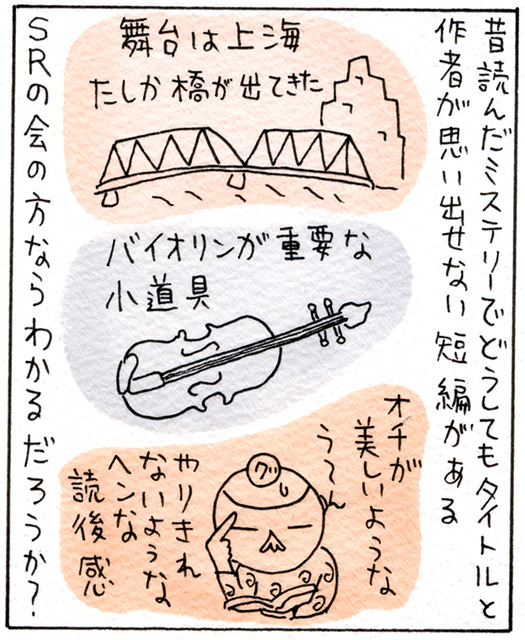 昔読んだミステリーでどうしてもタイトルと
作者が思い出せない短編がある
舞台は上海
たしか橋が出てきた
バイオリンが重要な
小道具
オチが
美しいような
うーん
グ
やりきれ
ないような
ヘンな
読後感
SRの会の方ならわかるだろうか?